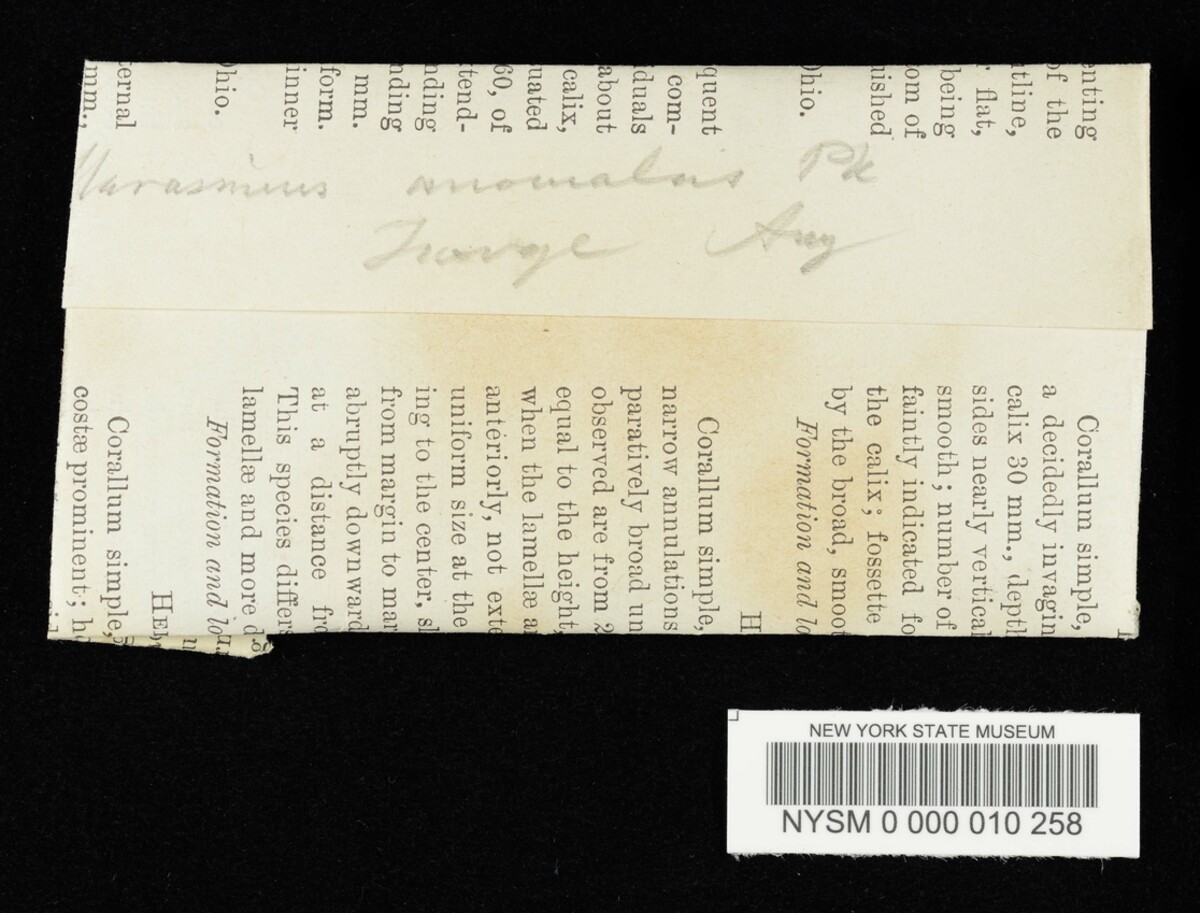 Marasmius anomalus Pk
Aug
enting
of the
utline,
r flat,
being
om of
uished
Ohio.
quent
com-
iduals
about
calix,
uated
60, of
tend-
nding
nding
mm.
form.
inner
Ohio.
ternal
mm.,
Corallum simple,
a decidedly invagin
calix 30 mm., depth
sides nearly vertical
smooth; number of
faintly indicated fo
the calix; fossette
by the broad, smoot
Formation and lo
H
Corallum simple,
narrow annulations
paratively broad un
observed are from 2
equal to the height,
when the lamellæ a
anteriorly, not exte
uniform size at the
ing to the center, sl
from margin to mar
abruptly downward
at a distance fro
This species differs
lamellæ and more d
Formation and lo
HEL
Corallum simple,
costæ prominent; ho
NEW YORK STATE MUSEUM
NYSM 0 000 010 258